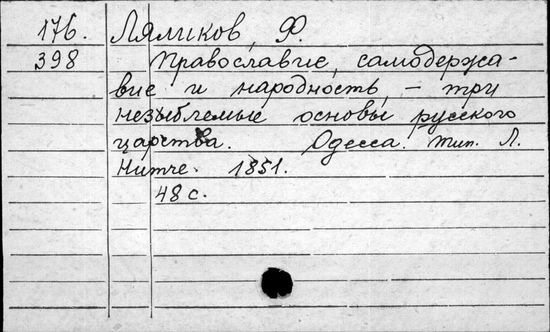 176. Лямиков, Ф.
398 Православие, самодержа-
вие и народность, – три
незыблемые основы русского
царства. Одесса. тип. Л.
Нитче. 1851.
48 с.